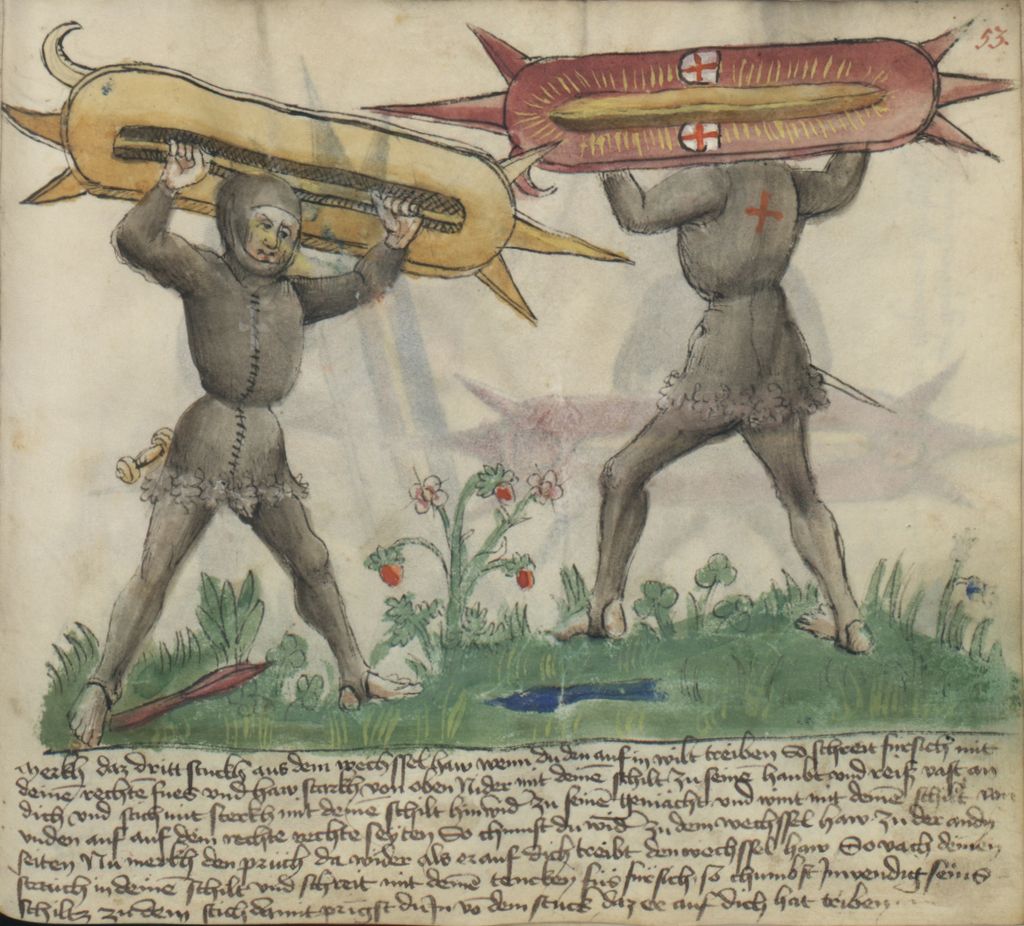 53.
Merkh daz dritt stuckh aus dem wechssel haw wenn du den auf in wilt treiben So schreit fürsich mit
deinē rechtē fues vnd haw starkh von oben Nider mit deinē schilt zu seinē haubt vnd reiß vast an
dich vnd stich mit sterckh mit deinē schilt hinwid zu seinē gemächt vnd wint mit deinē schilt von
vnden auf auf dein rechte rechte seyten So chumst du wid zu dem wechssel haw zu der andn
seiten Nu merkh den pruch da wider als er auf dich treibt den wechssel haw So vach deinen
straich in deinē schilt vnd schreit mit deinē tencken fus fürsich so chumbst Inwendig seins
schiltz zu dem stich damit prigst du In vō dem stuck daz er auf dich hat triben